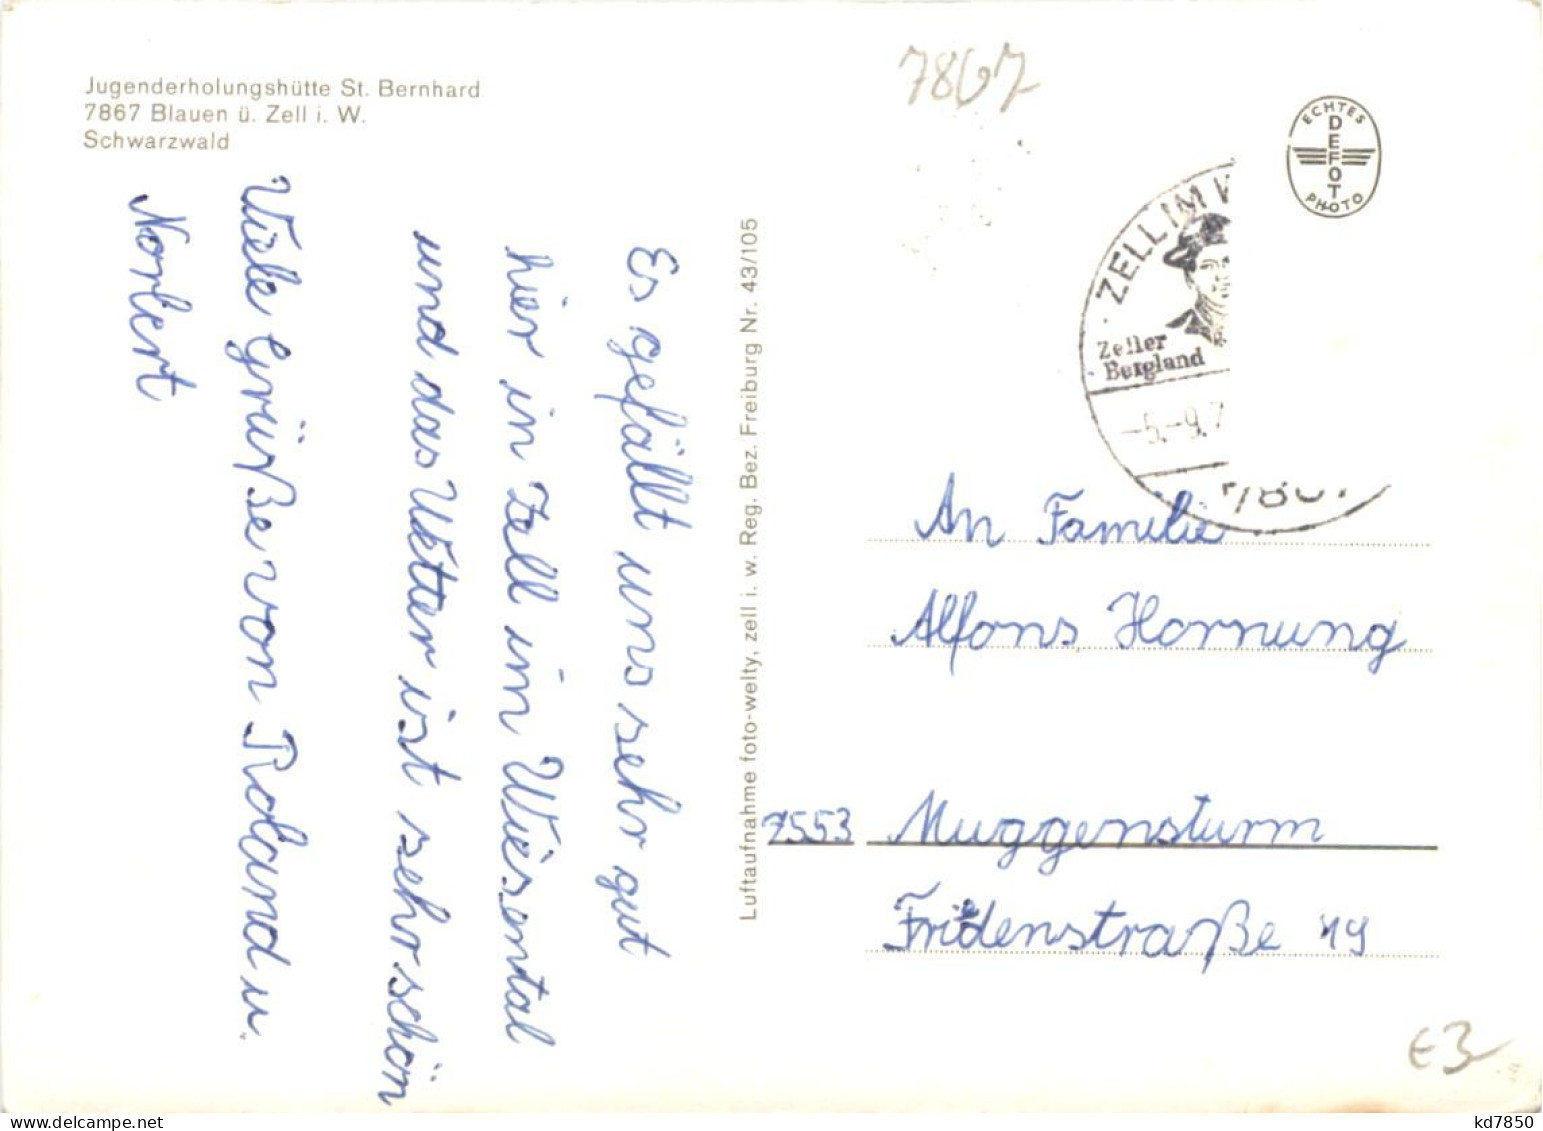 Jugenderholungshütte St. Bernhard
7867 Blauen ü. Zell i. W.
Schwarzwald
7867
ECHTES
DEFOT
PHOTO
ZELL IM W
Zeller
Bergland
-5.-9.7
Es gefällt uns sehr gut
hier in Zell im Wiesental
und das Wetter ist sehr schön
Viele Grüße von Roland u.
Norbert
Luftaufnahme foto-welty, zell i. w. Reg. Bez. Freiburg Nr. 43/105
An Familie
Alfons Hornung
7553 Muggensturm
Friedenstraße 19
€3
kd7850